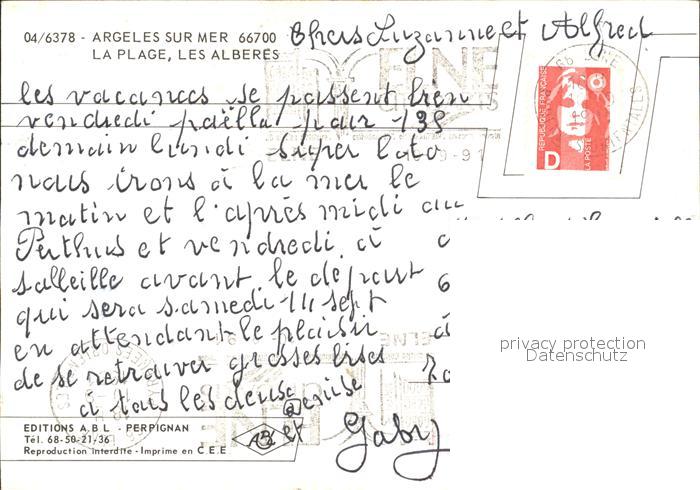 04/6378 - ARGELES SUR MER 66700
LA PLAGE, LES ALBERES
Chers Suzanne et Alfred
les vacances se passent bien
vendredi paëlla pour 139
demain lundi super loto
nous irons à la mer le
matin et l'après midi au
Perthus et vendredi à
salleille avant le depart
qui sera samedi 14 sept
en attendant le plaisir
de se retrouver grosses bises
à tous les deux
Denise
et
Gaby
REPUBLIQUE FRANÇAISE
D
LA POSTE
ELNE
EDITIONS A.B.L - PERPIGNAN
Tél. 68-50-21-36
Reproduction interdite - Imprimé en C.E.E
privacy protection
Datenschutz